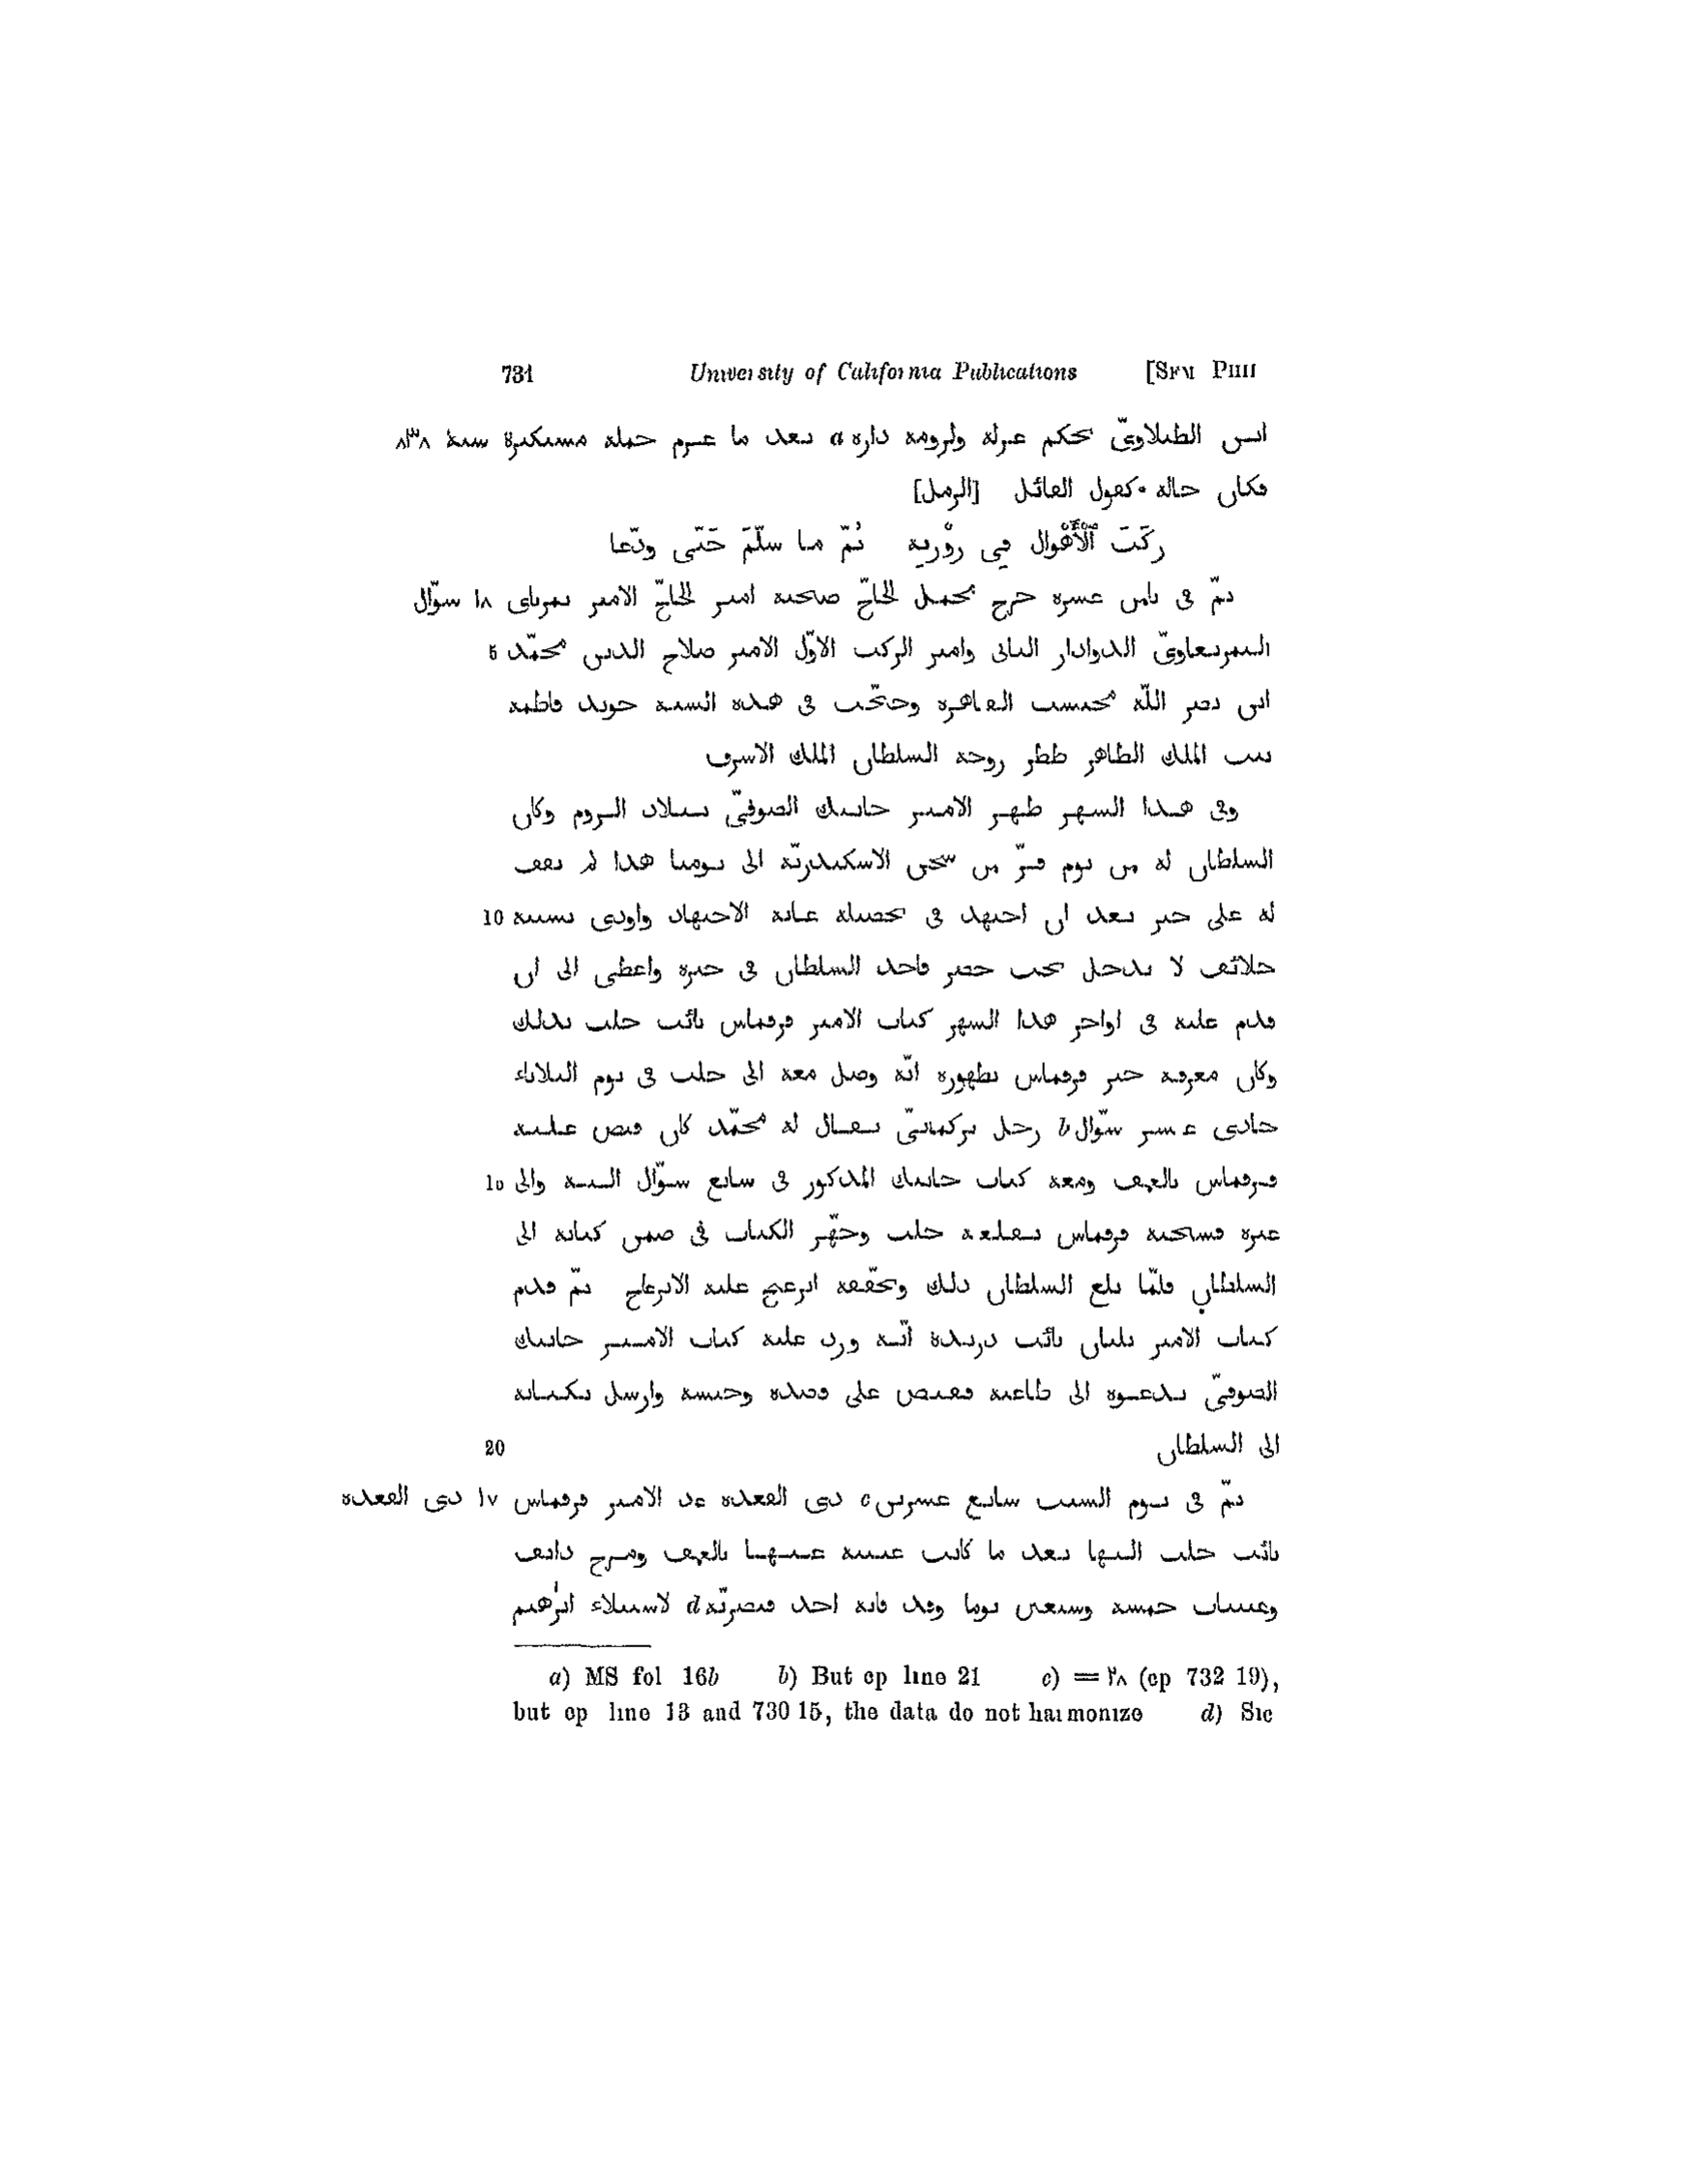 731 University of California Publications [SEM PHIL
ابن الطبلاوىّ بحكم عزله ولزومه داره a بعد ما غرم جملة مستكثرة سنة ٨٣٨
فكان حاله كقول القائل [الرمل]
ركبَ ٱلْأَهْوال فِي زوْرته ثُمّ ما سلّمَ حَتّى ودّعا
ثمّ فى ثامن عشره خرج محمل الحاجّ صحبة امير الحاجّ الامير تمرباى ١٨ شوّال
التمربغاوىّ الدوادار الثانى وامير الركب الاوّل الامير صلاح الدين محمّد 5
ابن نصر اللّه محتسب القاهرة وحجّت فى هذه السنة خوند فاطمة
بنت الملك الظاهر ططر زوجة السلطان الملك الاشرف
وفى هذا الشهر ظهر الامير جانبك الصوفىّ ببلاد الروم وكان
السلطان له من يوم فرّ من سجن الاسكندريّة الى يومنا هذا لم يقف
له على خبر بعد ان اجتهد فى تحصيله غاية الاجتهاد واوذى بسببه 10
خلائق لا تدخل تحت حصر فاخذ السلطان فى خبره واعطى الى ان
قدم عليه فى اواخر هذا الشهر كتاب الامير قرقماس نائب حلب بذلك
وكان معرفة خبر قرقماس بظهوره انّه وصل معه الى حلب فى يوم الثلاثاء
حادى عشر شوّال b رجل تركمانىّ يقال له محمّد كان قبض عليه
قرقماس بالعمق ومعه كتاب جانبك المذكور فى سابع شوّال السنة والى 15
غيره فسجنه قرقماس بقلعة حلب وجهّز الكتاب فى ضمن كتابه الى
السلطان فلمّا بلغ السلطان ذلك وتحقّقه انزعج غاية الانزعاج ثمّ قدم
كتاب الامير بلبان نائب درندة انّه ورد عليه كتاب الامير جانبك
الصوفىّ يدعوه الى طاعته فقبض على قصده وحبسه وارسل بكتابه
الى السلطان 20
ثمّ فى يوم السبت سابع عشرين c ذى القعدة عد الامير قرقماس ١٧ ذى القعدة
نائب حلب اليها بعد ما كانت غيبته عنها بالعمق ومرج دابق
وعينتاب خمسة وسبعين يوما وقد فاته اخذ قيصريّة d لاستيلاء ابرٰهيم
a) MS fol 16b b) But cp line 21 c) = ٢٨ (cp 732 19),
but cp line 13 and 730 15, the data do not harmonize d) Sic